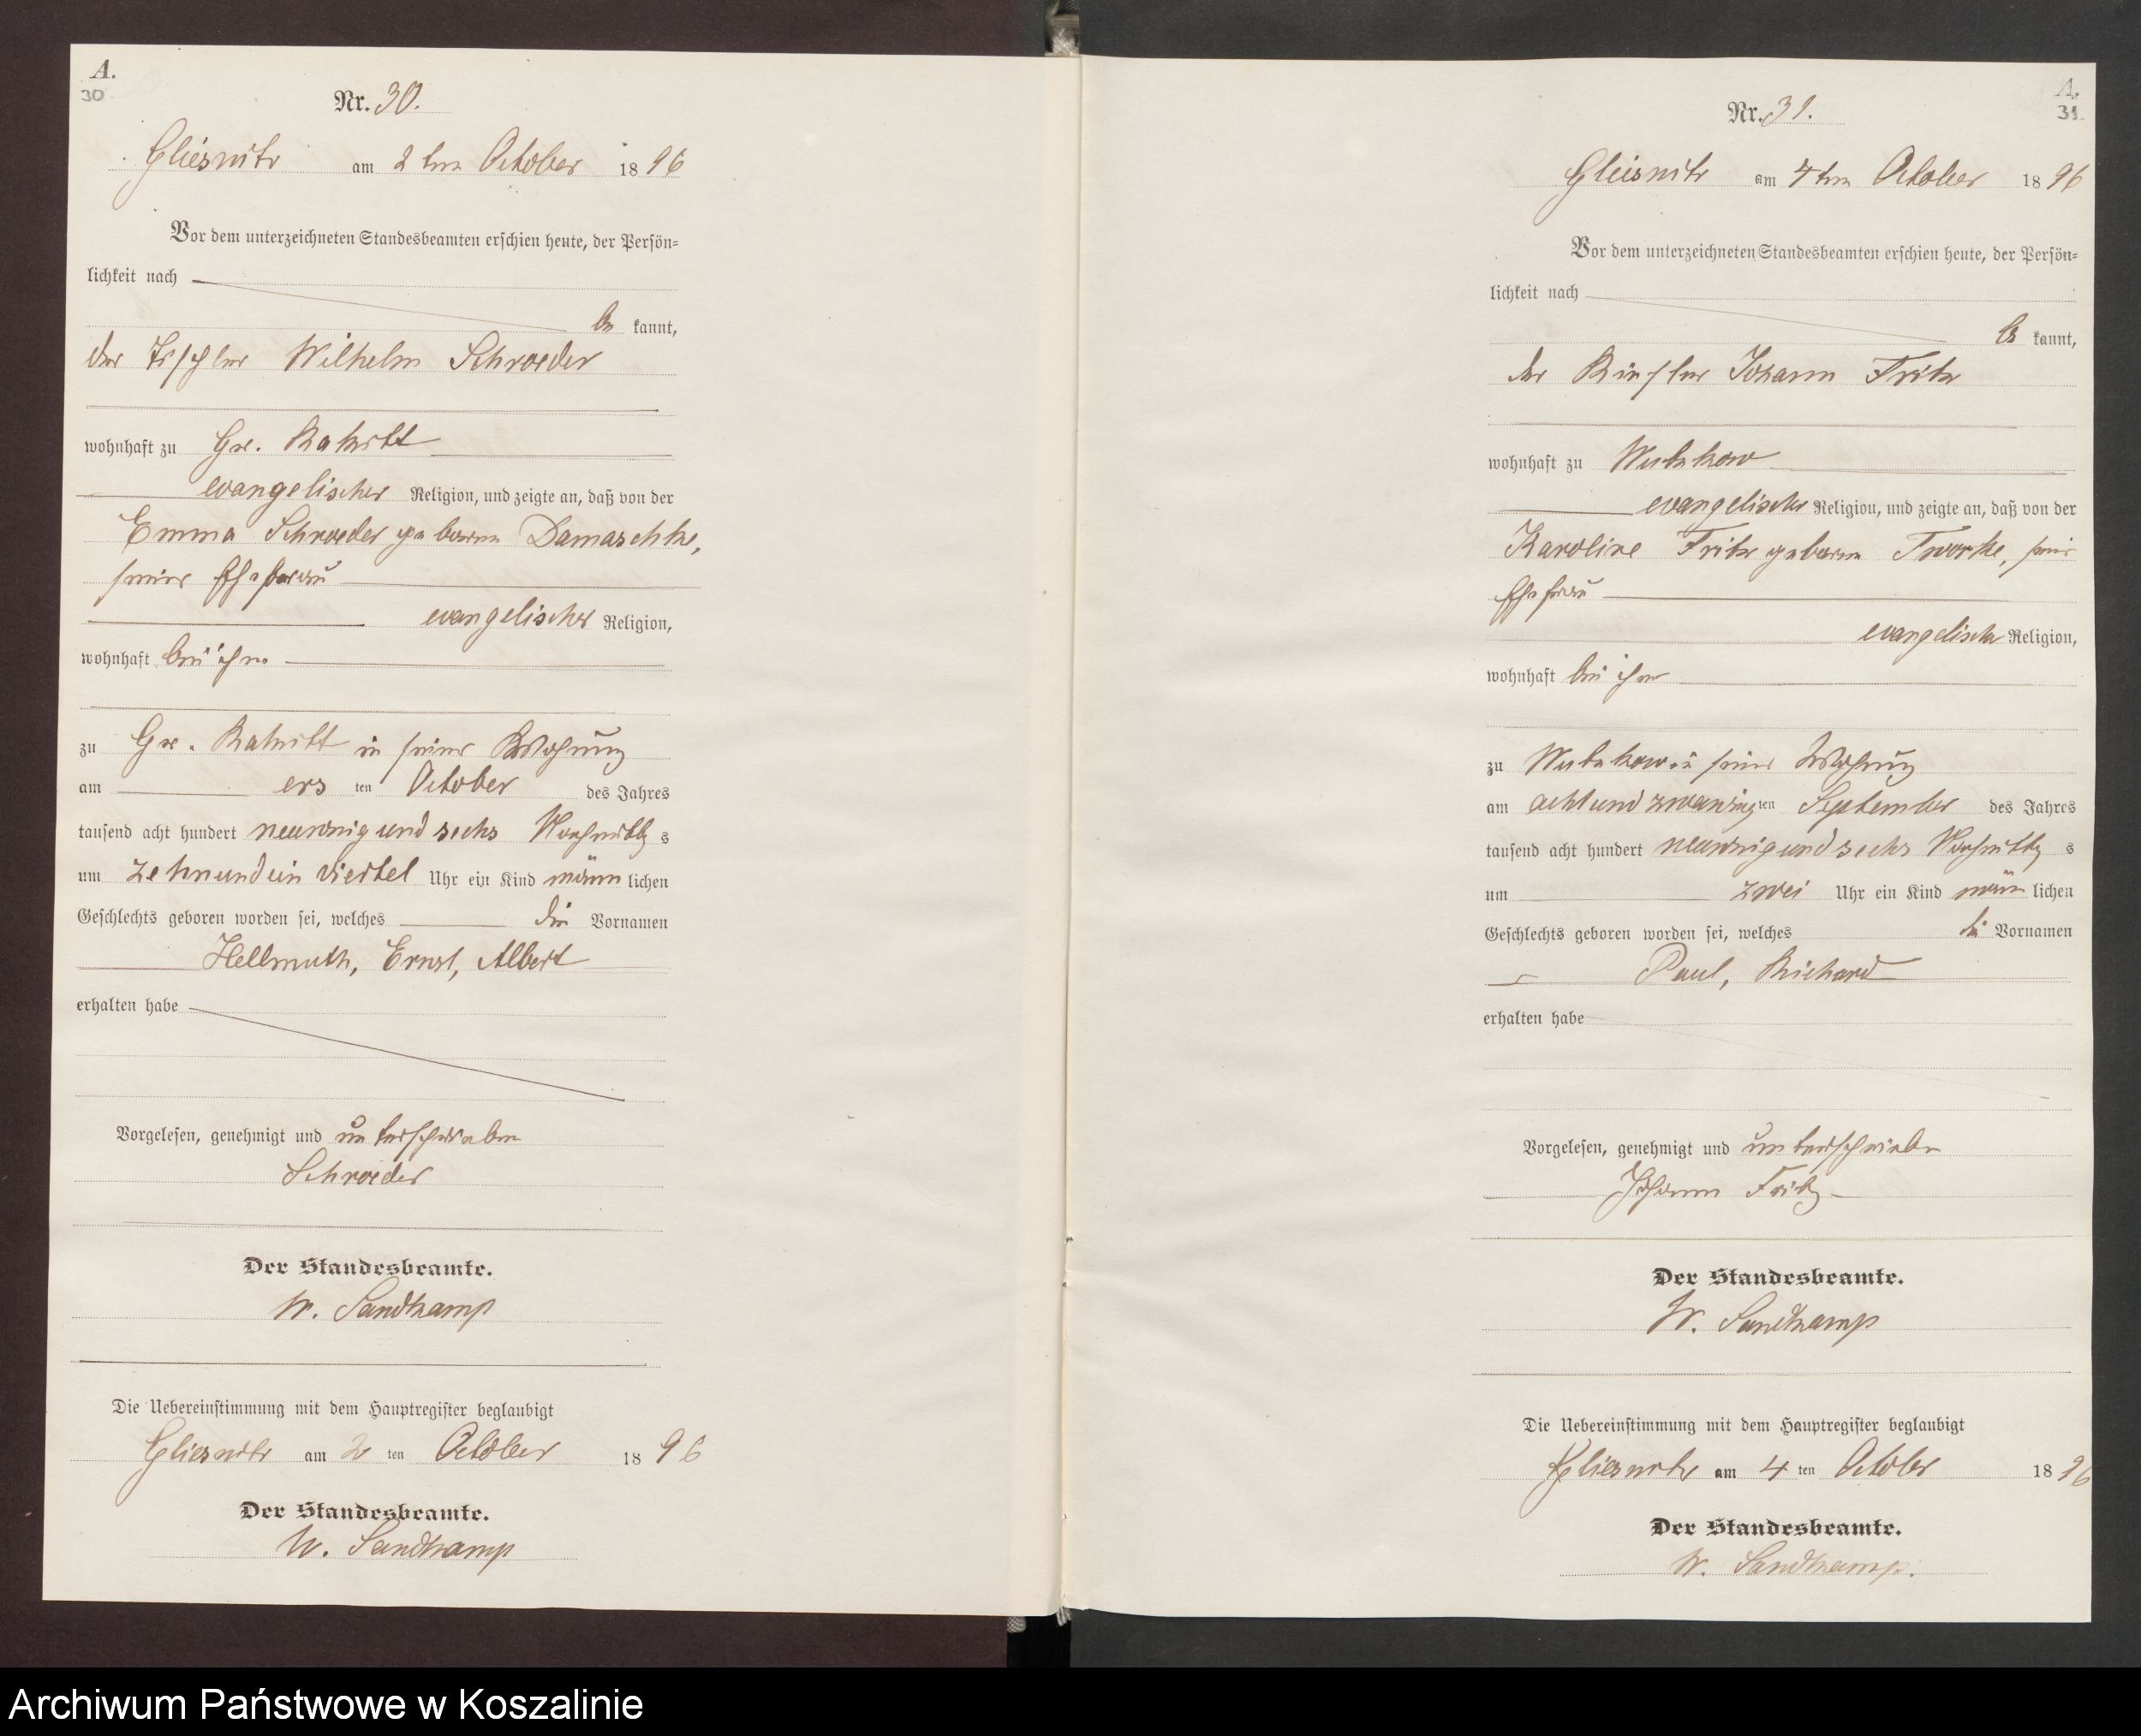 A.
30
Nr. 30.
Gliesnitz am 2ten October 1896
Vor dem unterzeichneten Standesbeamten erschien heute, der Persön-
lichkeit nach
be kannt,
der Tischler Wilhelm Schroeder
wohnhaft zu Gr. Rakitt
evangelischer Religion, und zeigte an, daß von der
Emma Schroeder geborne Damaschke,
seiner Ehefrau
evangelischer Religion,
wohnhaft bei ihm
zu Gr. Rakitt in seiner Wohnung
am ers ten October des Jahres
tausend acht hundert neunzig und sechs Vormittag s
um zehn und ein viertel Uhr ein Kind männ lichen
Geschlechts geboren worden sei, welches die Vornamen
Hellmuth, Ernst, Albert
erhalten habe
Vorgelesen, genehmigt und unterschrieben
Schroeder
Der Standesbeamte.
W. Sandkamp
Die Uebereinstimmung mit dem Hauptregister beglaubigt
Gliesnitz am 2 ten October 1896
Der Standesbeamte.
W. Sandkamp
A.
31
Nr. 31.
Gliesnitz am 4ten October 1896
Vor dem unterzeichneten Standesbeamten erschien heute, der Persön-
lichkeit nach
be kannt,
der Johann Fritz
wohnhaft zu Wutzkow
evangelischer Religion, und zeigte an, daß von der
Karoline Fritz geborne Tworke, seiner
Ehefrau
evangelischer Religion,
wohnhaft bei ihm
zu Wutzkow in seiner Wohnung
am acht und zwanzig ten September des Jahres
tausend acht hundert neunzig und sechs Vormittag s
um zwei Uhr ein Kind männ lichen
Geschlechts geboren worden sei, welches die Vornamen
Paul, Richard
erhalten habe
Vorgelesen, genehmigt und unterschrieben
Johann Fritz
Der Standesbeamte.
W. Sandkamp
Die Uebereinstimmung mit dem Hauptregister beglaubigt
Gliesnitz am 4 ten October 1896
Der Standesbeamte.
W. Sandkamp.
Archiwum Państwowe w Koszalinie